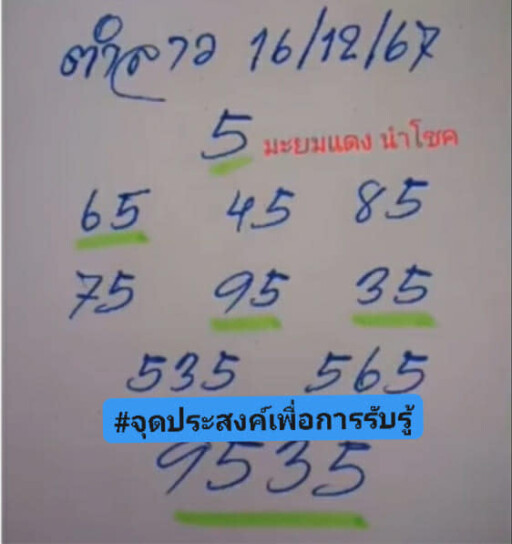 ตำลาว 16/12/67
5 มะยมแดง นำโชค
65 45 85
75 95 35
535 565
#จุดประสงค์เพื่อการรับรู้
9535